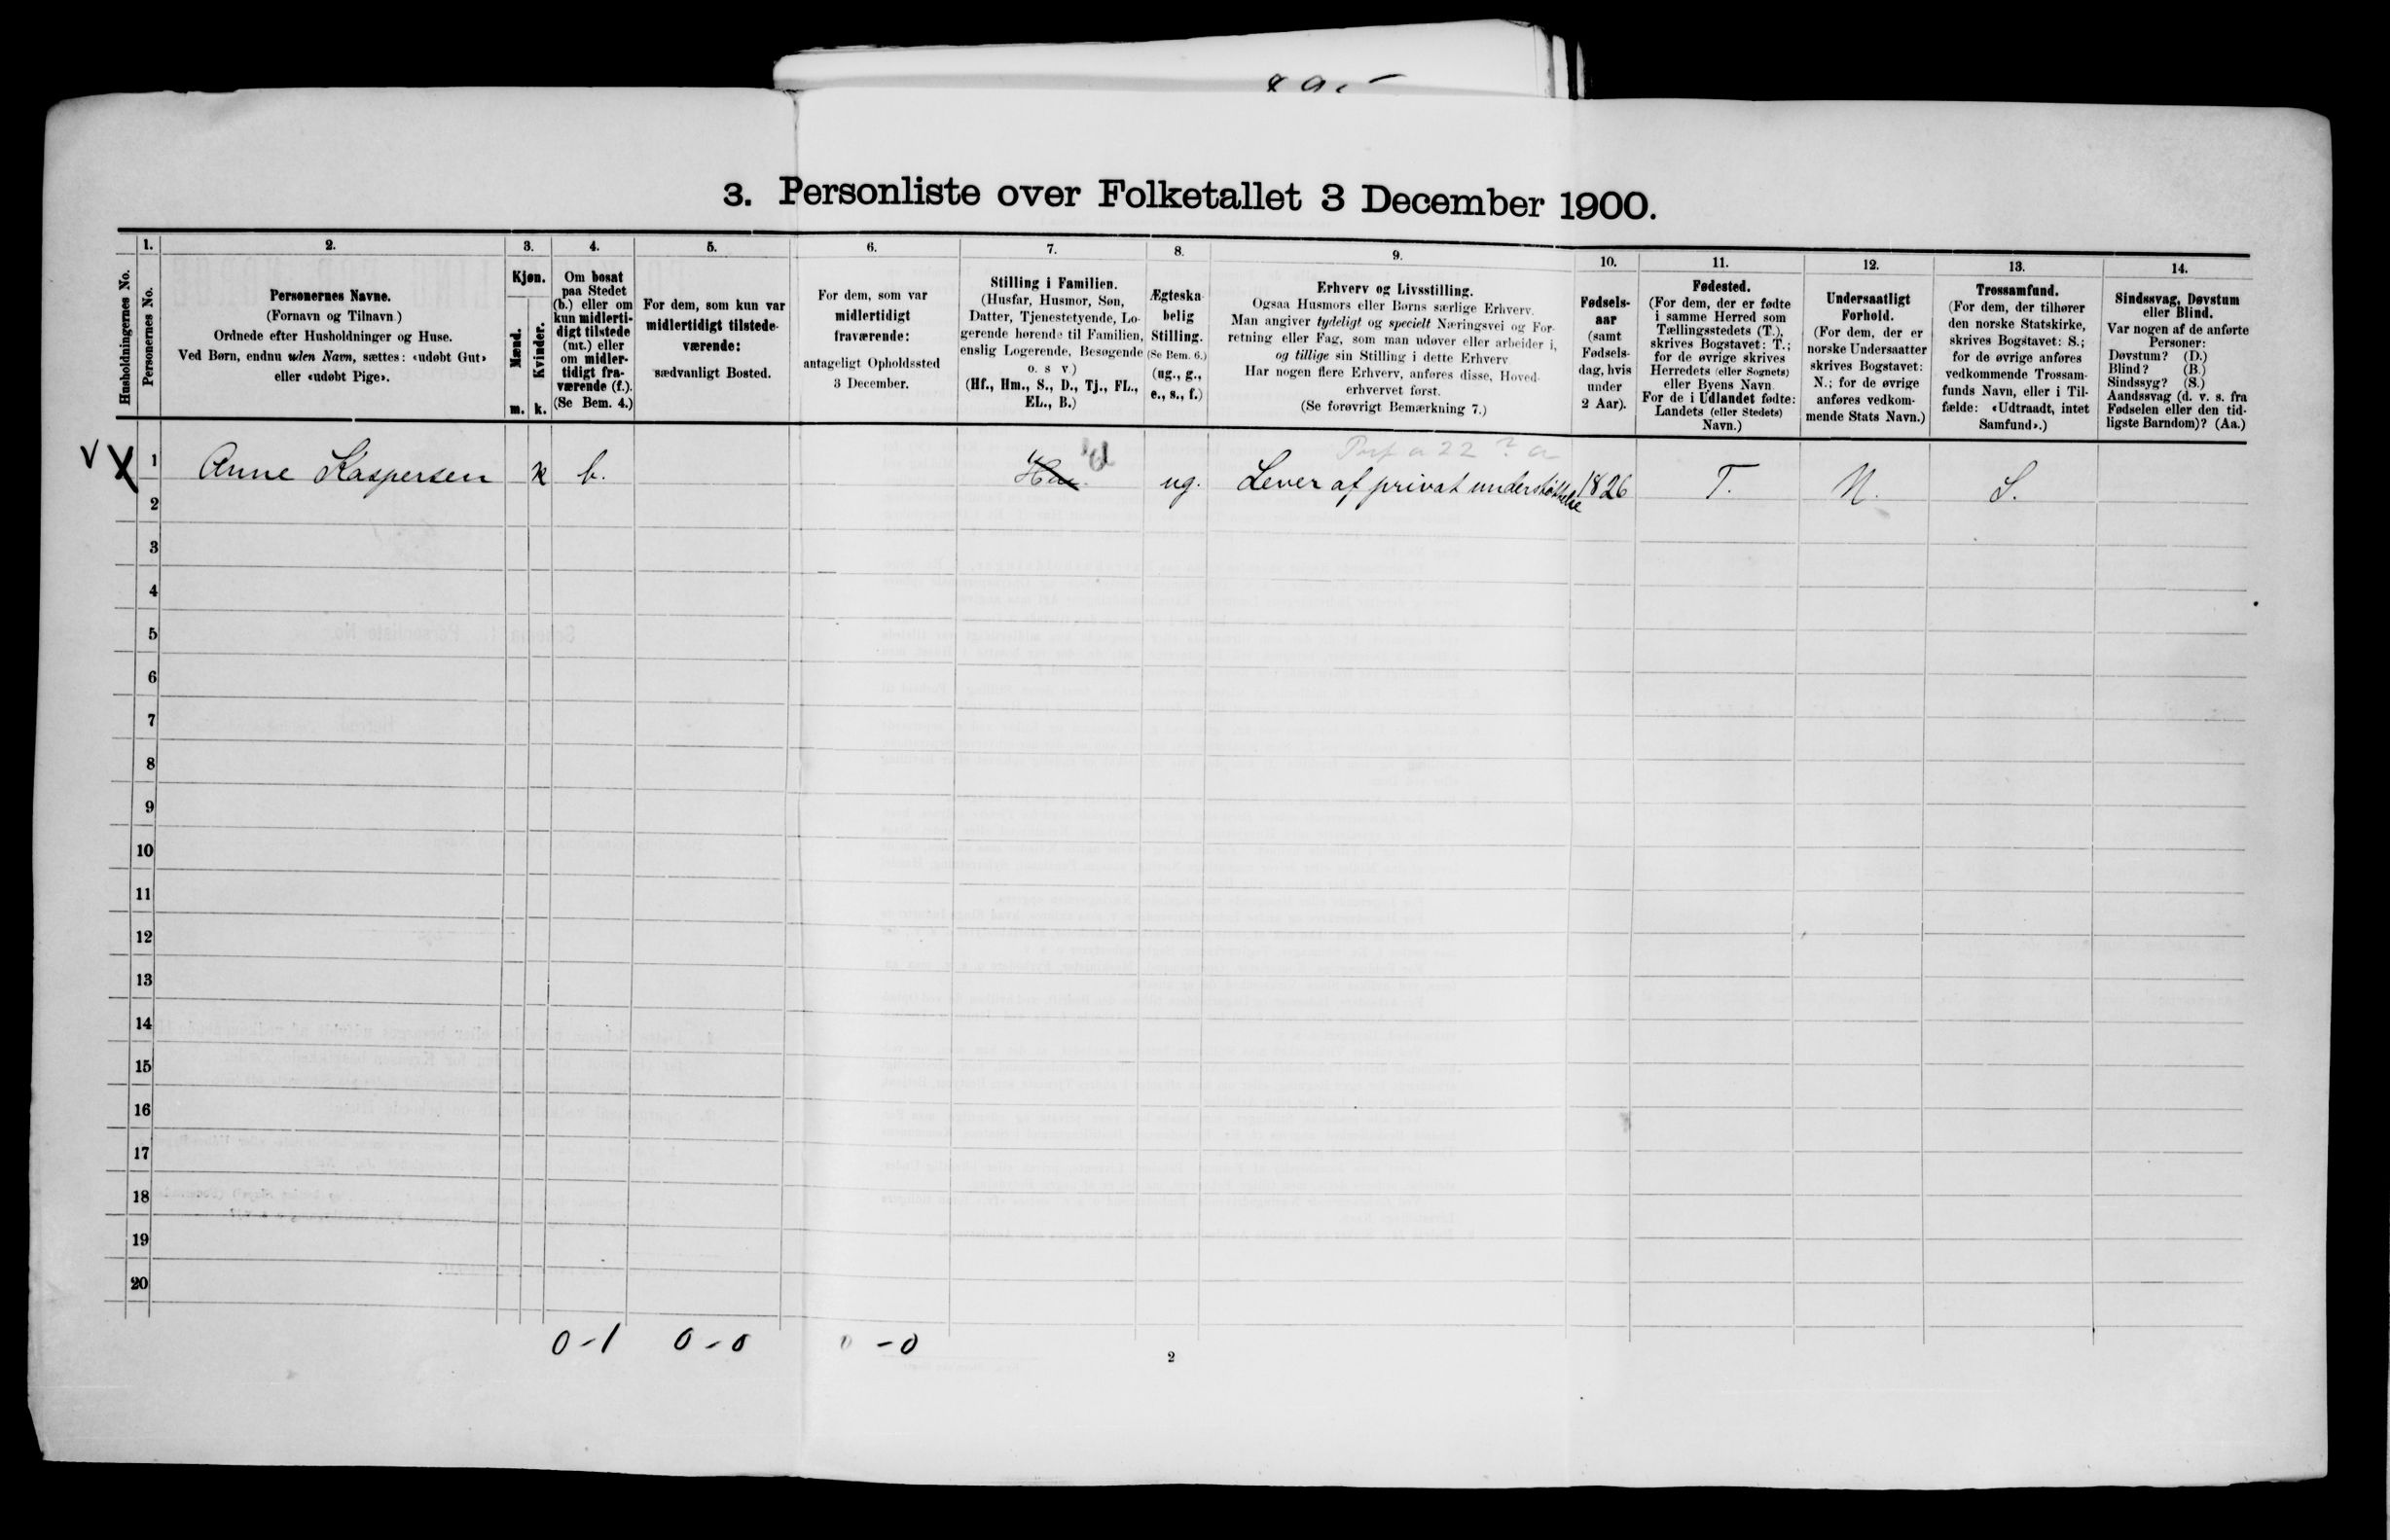 3. Personliste over Folketallet 3 December 1900.
Husholdningernes No.
1.
Personernes No.
2.
Personernes Navne.
(Fornavn og Tilnavn)
Ordnede efter Husholdninger og Huse.
Ved Børn, endnu uden Navn, sættes: «udøbt Gut»
eller «udøbt Pige».
3.
Kjøn.
Mænd.
m.
Kvinder.
k.
4.
Om bosat
paa Stedet
(b.) eller om
kun midlerti-
digt tilstede
(mt.) eller
om midler-
tidigt fra-
værende (f.).
(Se Bem. 4.)
5.
For dem, som kun var
midlertidigt tilstede-
værende:
sædvanligt Bosted.
6.
For dem, som var
midlertidigt
fraværende:
antageligt Opholdssted
3 December.
7.
Stilling i Familien.
(Husfar, Husmor, Søn,
Datter, Tjenestetyende, Lo-
gerende hørende til Familien,
enslig Logerende, Besøgende
o. s v)
(Hf., Hm., S., D., Tj., FL.,
EL., B.)
8.
Ægteska-
belig
Stilling.
(Se Bem. 6.)
(ug., g.,
e., s., f.)
9.
Erhverv og Livsstilling.
Ogsaa Husmors eller Børns særlige Erhverv.
Man angiver tydeligt og specielt Næringsvei og For-
retning eller Fag, som man udøver eller arbeider i,
og tillige sin Stilling i dette Erhverv
Har nogen flere Erhverv, anføres disse, Hoved-
erhvervet først.
(Se forøvrigt Bemærkning 7.)
10.
Fødsels-
aar
(samt
Fødsels-
dag, hvis
under
2 Aar).
11.
Fødested.
(For dem, der er fødte
i samme Herred som
Tællingsstedets (T.),
skrives Bogstavet: T.;
for de øvrige skrives
Herredets (eller Sognets)
eller Byens Navn.
For de i Udlandet fødte:
Landets (eller Stedets)
Navn.)
12.
Undersaatligt
Forhold.
(For dem, der er
norske Undersaatter
skrives Bogstavet:
N.; for de øvrige
anføres vedkom-
mende Stats Navn.)
13.
Trossamfund.
(For dem, der tilhører
den norske Statskirke,
skrives Bogstavet: S.;
for de øvrige anføres
vedkommende Trossam-
funds Navn, eller i Til-
fælde: «Udtraadt, intet
Samfund».)
14.
Sindssvag, Døvstum
eller Blind.
Var nogen af de anførte
Personer:
Døvstum? (D.)
Blind? (B.)
Sindssyg? (S.)
Aandssvag (d. v. s. fra
Fødselen eller den tid-
ligste Barndom)? (Aa.)
V X 1 Anne Kaspersen k b. ug. Lever af privat understøttelse 1826 T. N. S.
2
3
4
5
6
7
8
9
10
11
12
13
14
15
16
17
18
19
20
0 - 1 0 - 0 0 - 0
2